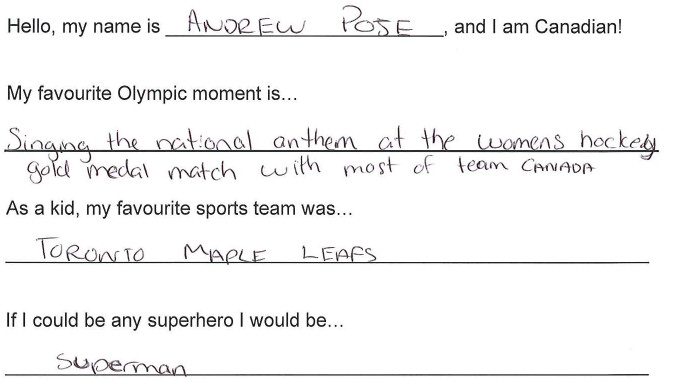 Hello, my name is ANDREW POSE, and I am Canadian!
My favourite Olympic moment is...
Singing the national anthem at the womens hockey
gold medal match with most of team CANADA
As a kid, my favourite sports team was...
TORONTO MAPLE LEAFS
If I could be any superhero I would be...
Superman